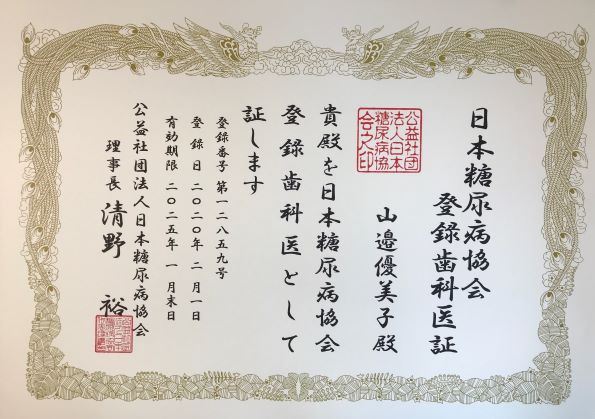 日本糖尿病協会
登録歯科医証
山邉優美子殿
公益社団
法人日本
糖尿病協
会之印
貴殿を日本糖尿病協会
登録歯科医として
証します
登録番号 第一二八五九号
登録日 二〇二〇年 二月一日
有効期限 二〇二五年 一月末日
公益社団法人日本糖尿病協会
理事長 清野 裕